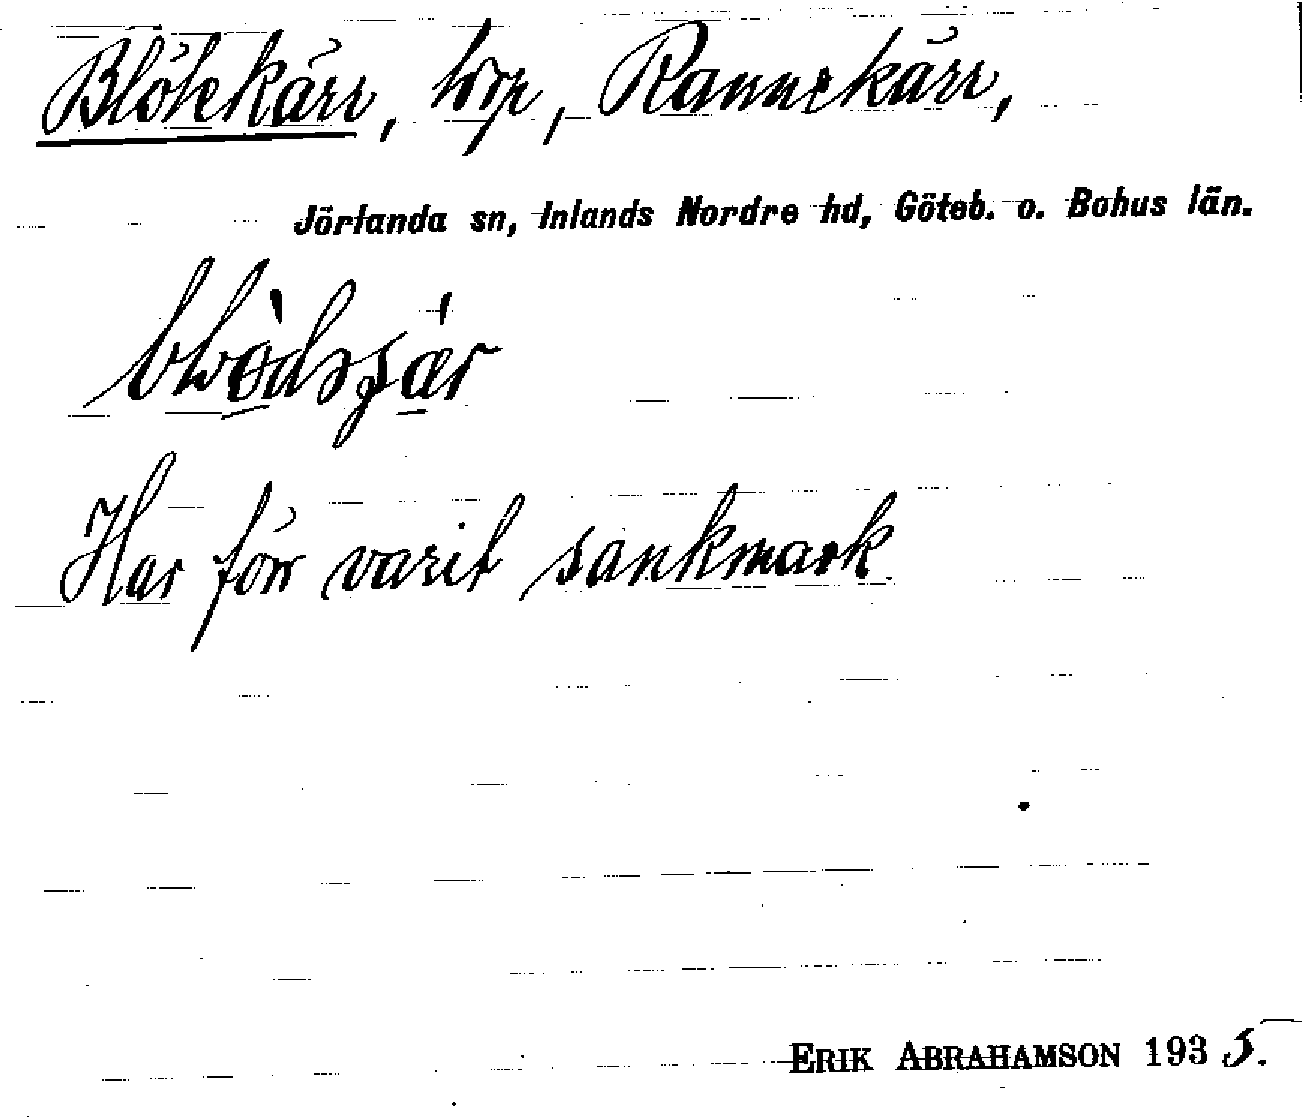 Blötekärr, torp, Rannekärr,
Jörlanda sn, Inlands Nordre hd, Göteb. o. Bohus län.
Har förr varit sankmark.
ERIK ABRAHAMSON 1935.